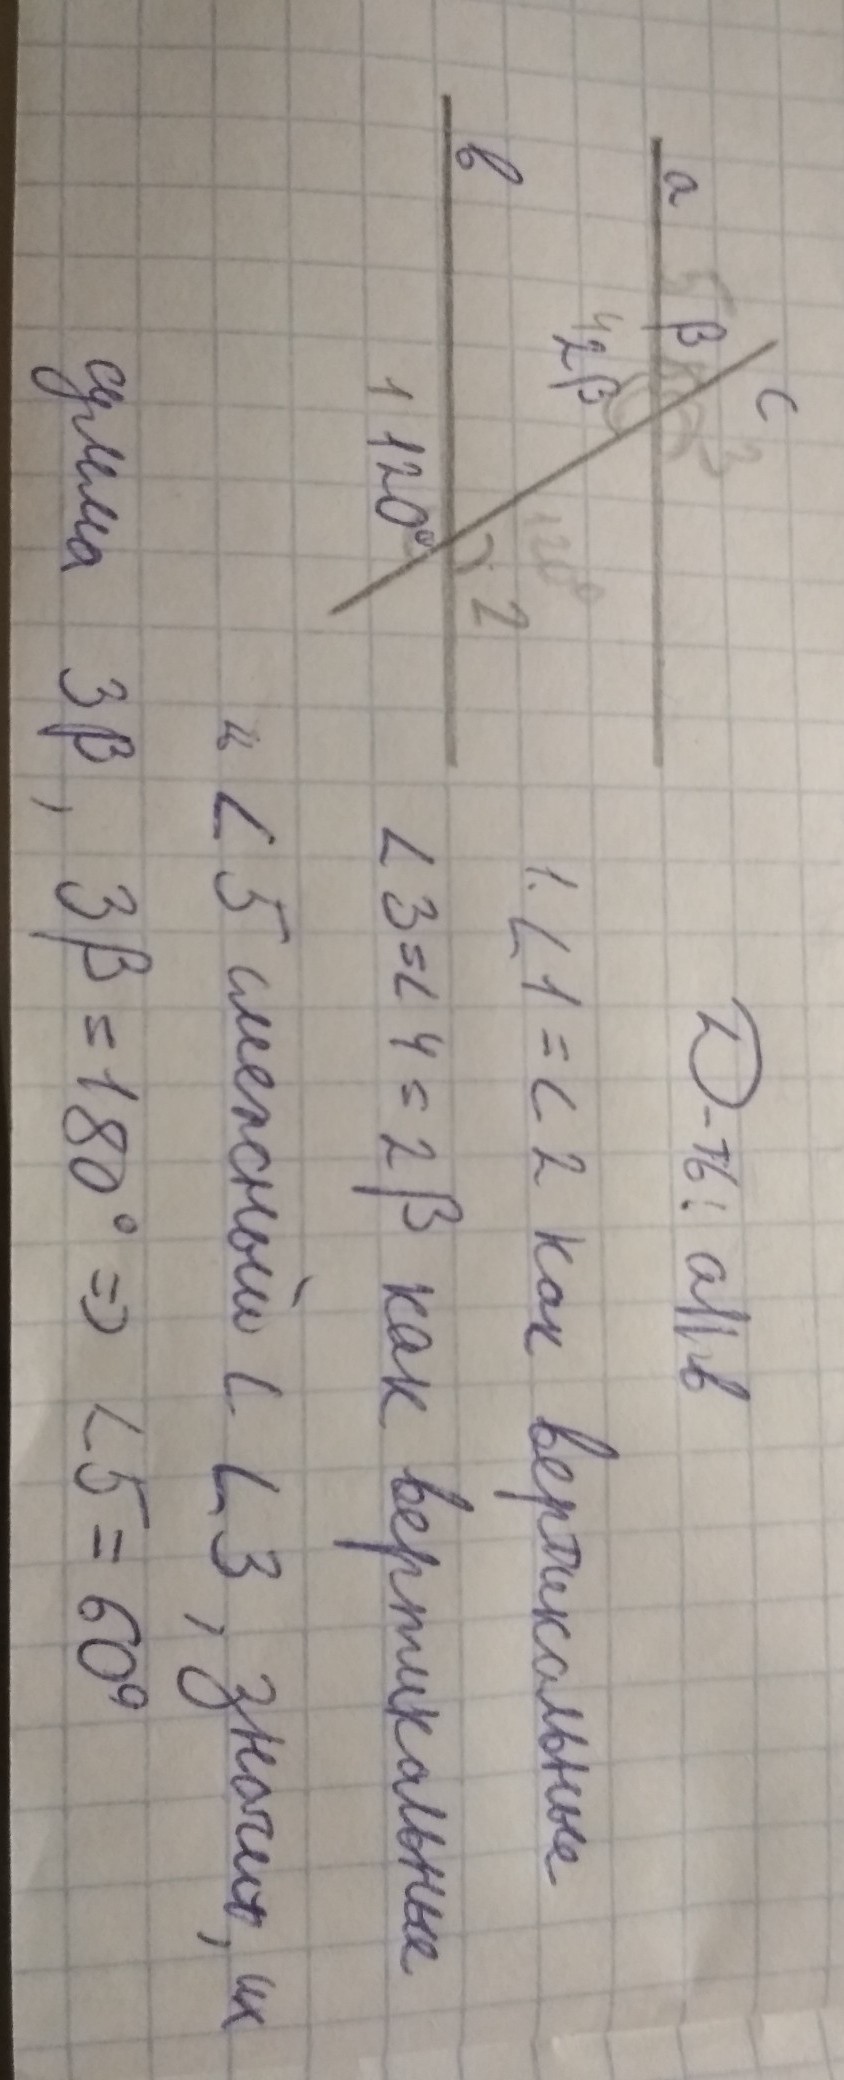 a 5 β c 3
4 2β
в 120°
1 120° 2
Д-ть: a||в
1. ∠1=∠2 как вертикальные
∠3=∠4=2β как вертикальные
∠5 смежный с ∠3, значит, их
сумма 3β, 3β=180° => ∠5=60°